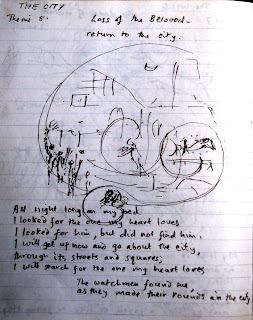 THE CITY
Theme 5. Loss of the Beloved -
return to the city.
All night long on my bed
I looked for the one my heart loves
I looked for him, but did not find him.
I will get up now and go about the city,
through its streets and squares;
I will search for the one my heart loves
The watchmen found me
as they made their rounds in the city